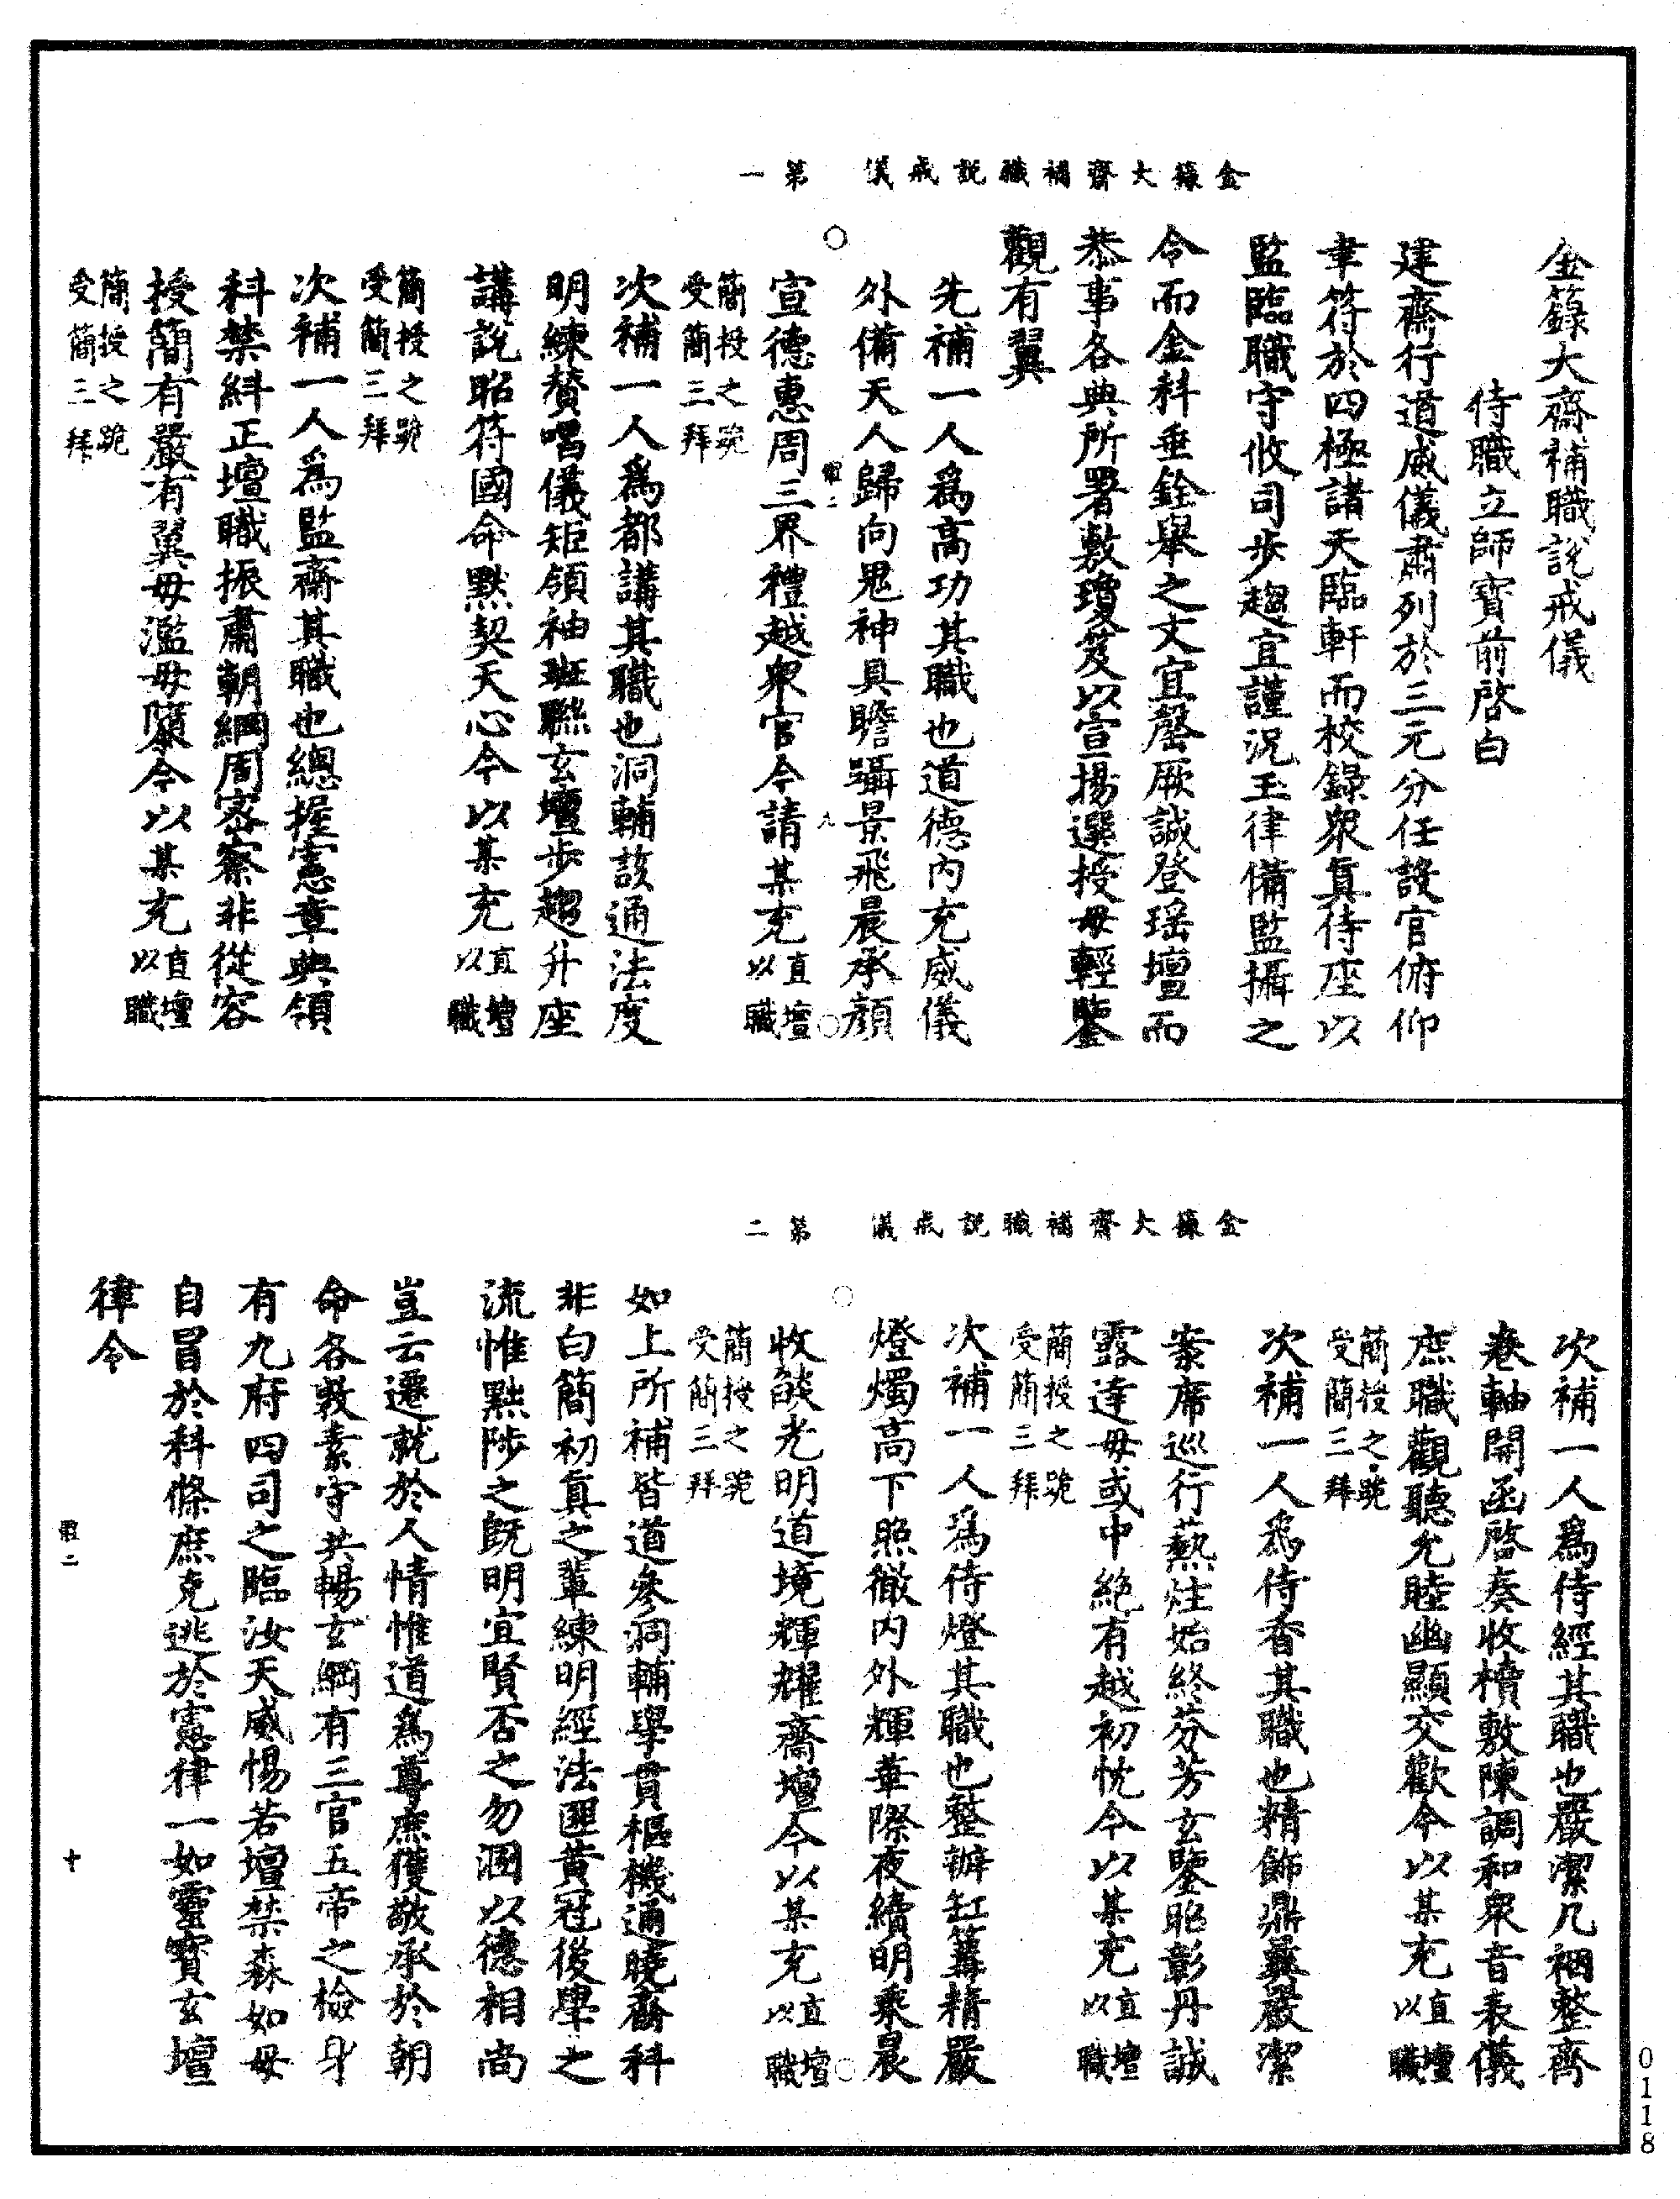 金籙大齋補職說戒儀　第一
金籙大齋補職說戒儀
侍職立師寶前啓白
建齋行道威儀肅列於三元分任設官俯仰
聿符於四極諸天臨軒而校錄衆眞侍座以
監臨職守攸司步趨宜謹況玉律備監攝之
令而金科垂銓舉之文宜罄厥誠登瑤壇而
恭事各典所署敷瓊笈以宣揚選授毋輕鑒
觀有翼
先補一人爲高功其職也道德內充威儀
外備天人歸向鬼神具瞻躡景飛晨承顏
宣德惠周三界禮越衆官今請某充直壇以職
簡授之跪受簡三拜
次補一人爲都講其職也洞輔該通法度
明練贊唱儀矩領袖班聯玄壇步趨升座
講說昭符國命默契天心今以某充直壇以職
簡授之跪受簡三拜
次補一人爲監齋其職也總握憲章典領
科禁糾正壇職振肅朝綱周密察非從容
授簡有嚴有翼毋濫毋隳今以某充直壇以職
簡授之跪受簡三拜
金籙大齋補職說戒儀　第二
次補一人爲侍經其職也嚴潔几裀整齊
卷軸開函啓奏收櫝敷陳調和衆音表儀
庶職觀聽允睦幽顯交歡今以某充直壇以職
簡授之跪受簡三拜
次補一人爲侍香其職也精飾鼎彝嚴潔
案席巡行爇炷始終芬芳玄鑒昭彰丹誠
露達毋或中絕有越初忱今以某充直壇以職
簡授之跪受簡三拜
次補一人爲侍燈其職也整辦缸篝精嚴
燈燭高下照徹內外輝華際夜續明乘晨
收燄光明道境輝耀齋壇今以某充直壇以職
簡授之跪受簡三拜
如上所補皆道參洞輔學貫樞機通曉齋科
非白簡初眞之輩練明經法匪黃冠後學之
流惟黜陟之旣明宜賢否之勿溷以德相尚
豈云遷就於人情惟道爲尊庶獲敬承於朝
命各敦素守共暢玄綱有三官五帝之檢身
有九府四司之臨汝天威惕若壇禁森如毋
自冒於科條庶克逃於憲律一如靈寶玄壇
律令
二
十
0118